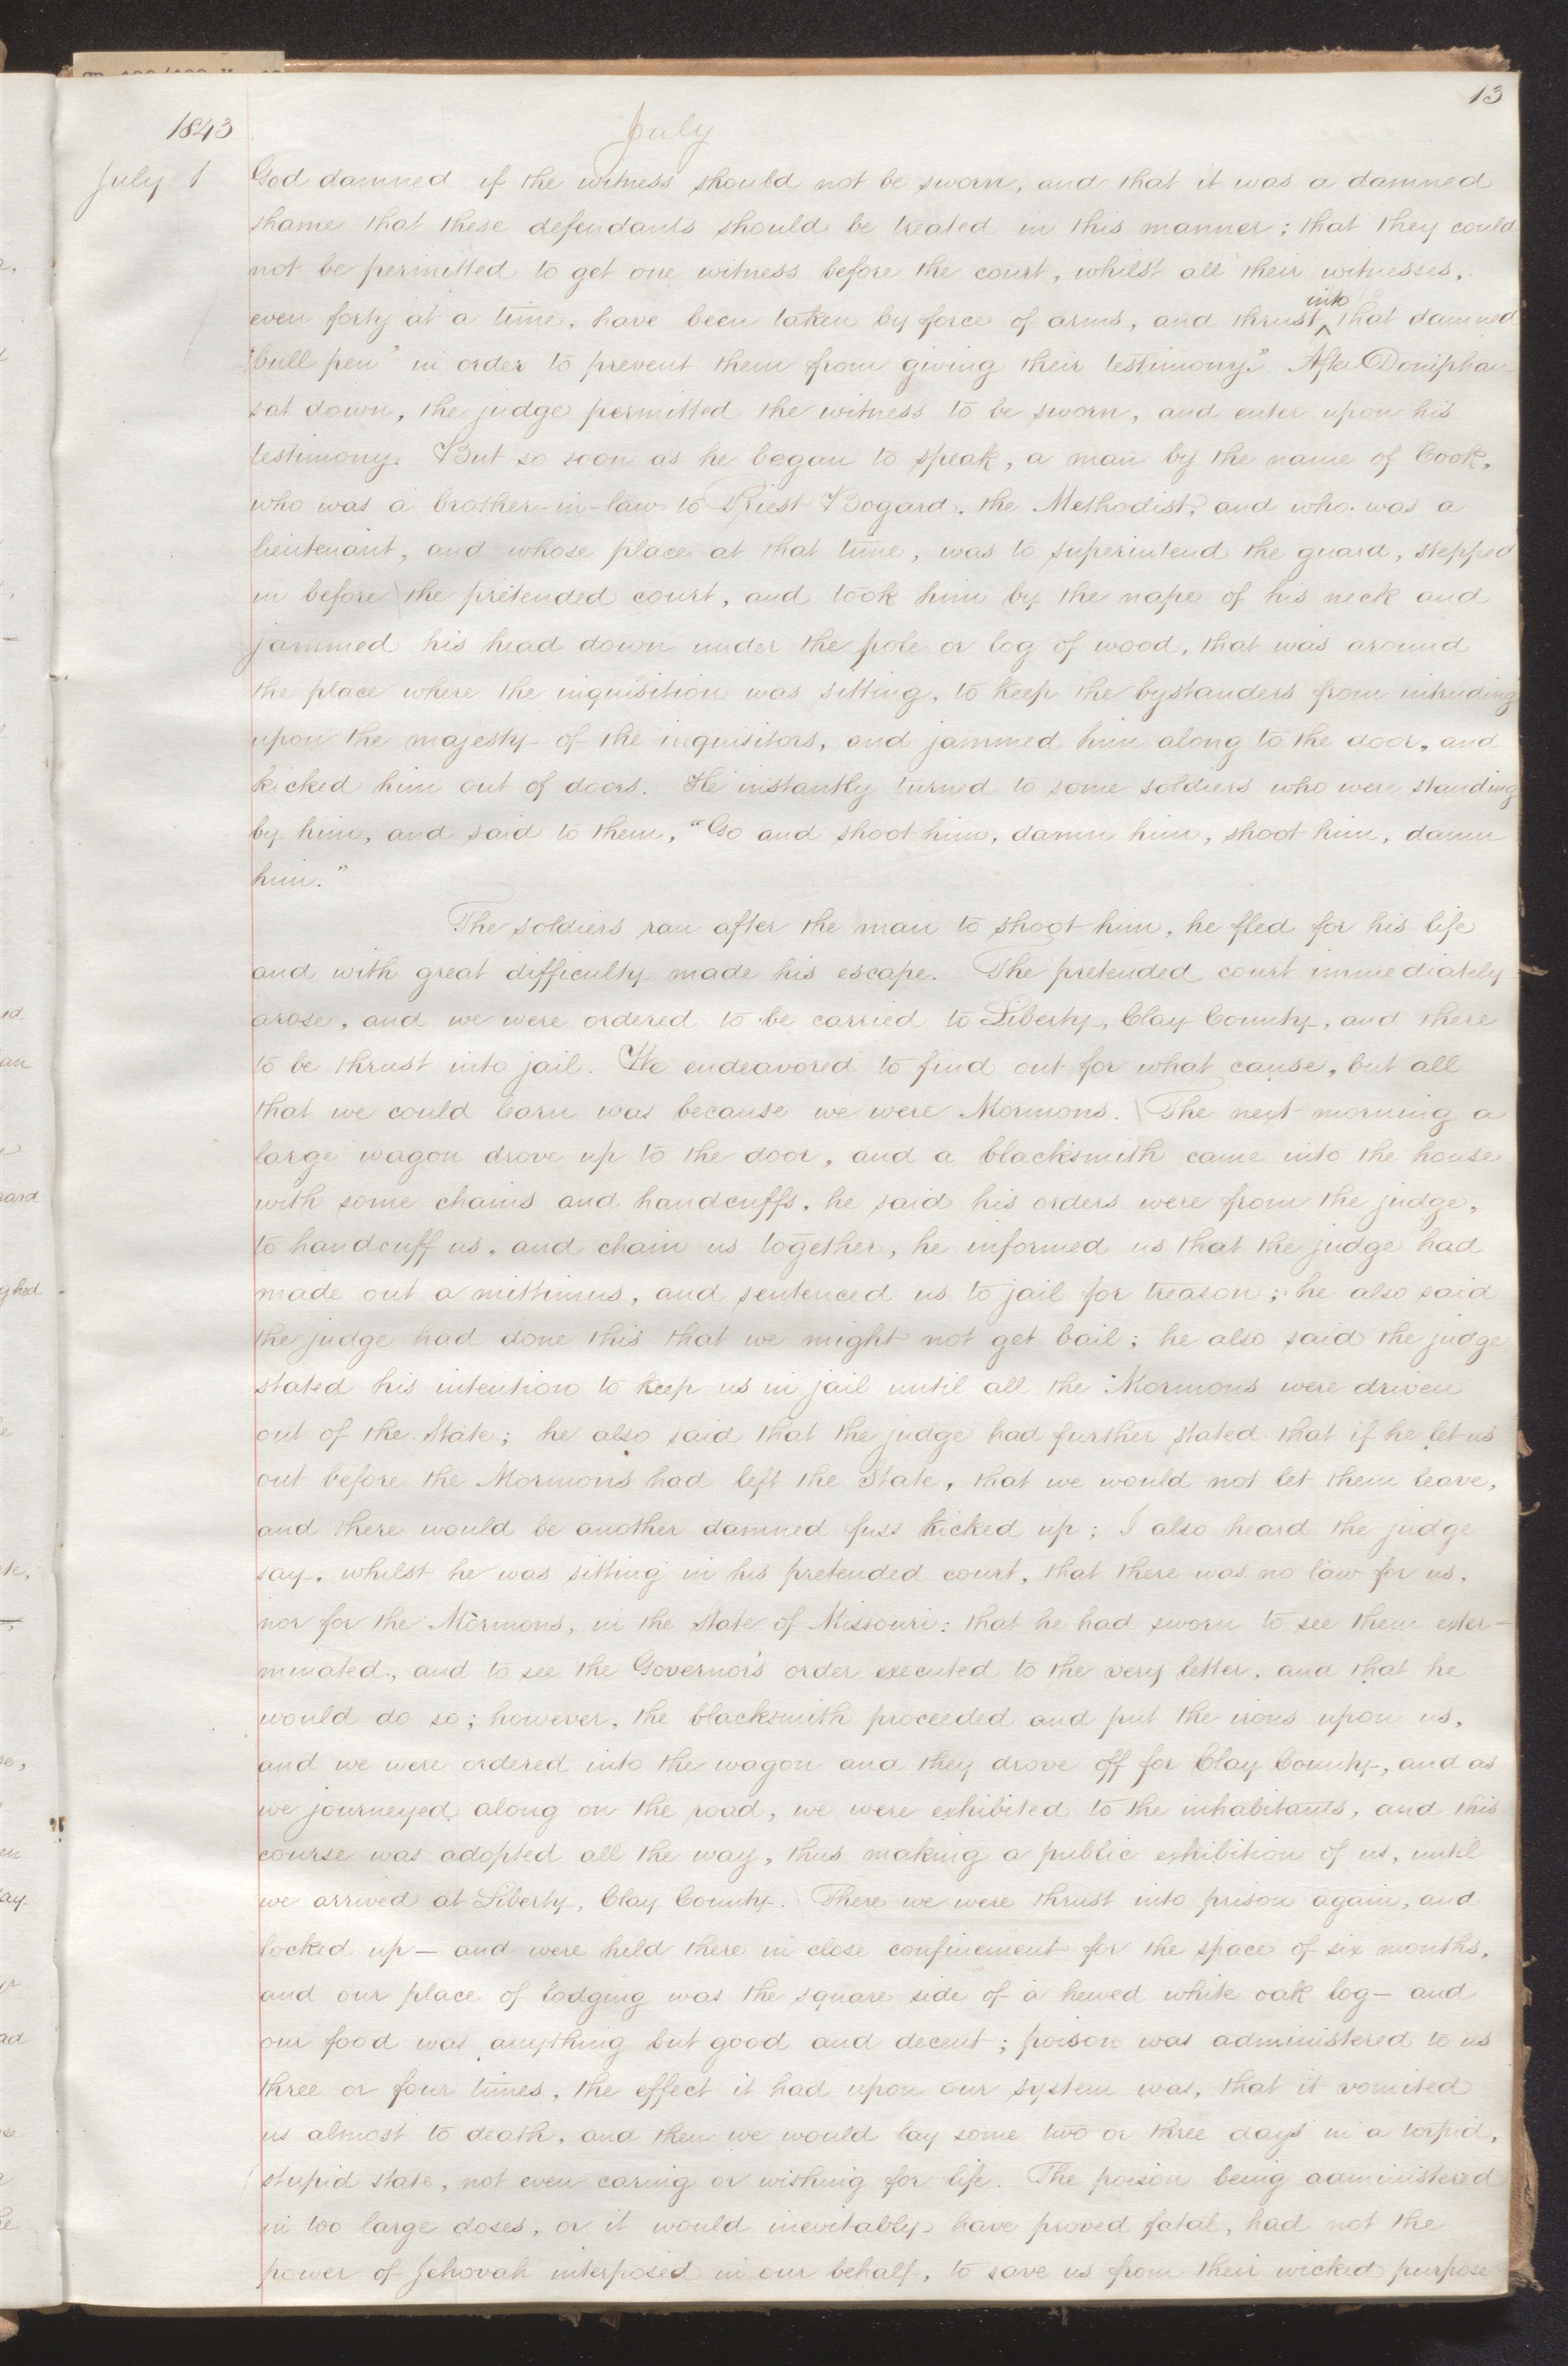 13
1843
July
July 1
God damned if the witness should not be sworn, and that it was a damned
shame that these defendants should be treated in this manner; that they could
not be permitted to get one witness before the court, whilst all their witnesses,
even forty at a time, have been taken by force of arms, and thrust into that damned
"bull pen" in order to prevent them from giving their testimony." After Doniphan
sat down, the judge permitted the witness to be sworn, and enter upon his
testimony. But so soon as he began to speak, a man by the name of Cook,
who was a brother-in-law to Priest Bogard, the Methodist, and who was a
lieutenant, and whose place at that time, was to superintend the guard, stepped
in before the pretended court, and took him by the nape of his neck and
jammed his head down under the pole or log of wood, that was around
the place where the inquisition was sitting, to keep the bystanders from intruding
upon the majesty of the inquisitors, and jammed him along to the door, and
kicked him out of doors. He instantly turned to some soldiers who were standing
by him, and said to them, "Go and shoot him, damn him, shoot him, damn
him."
The soldiers ran after the man to shoot him, he fled for his life
and with great difficulty made his escape. The pretended court immediately
arose, and we were ordered to be carried to Liberty, Clay County, and there
to be thrust into jail. We endeavored to find out for what cause, but all
that we could learn was because we were Mormons. The next morning a
large wagon drove up to the door, and a blacksmith came into the house
with some chains and handcuffs, he said his orders were from the judge,
to handcuff us, and chain us together, he informed us that the judge had
made out a mittimus, and sentenced us to jail for treason; he also said
the judge had done this that we might not get bail; he also said the judge
stated his intention to keep us in jail until all the Mormons were driven
out of the State; he also said that the judge had further stated that if he let us
out before the Mormons had left the State, that we would not let them leave,
and there would be another damned fuss kicked up; I also heard the judge
say, whilst he was sitting in his pretended court, that there was no law for us,
nor for the Mormons, in the State of Missouri: that he had sworn to see them exter-
minated, and to see the Governor's order executed to the very letter, and that he
would do so; however, the blacksmith proceeded and put the irons upon us,
and we were ordered into the wagon and they drove off for Clay County, and as
we journeyed along on the road, we were exhibited to the inhabitants, and this
course was adopted all the way, thus making a public exhibition of us, until
we arrived at Liberty, Clay County. There we were thrust into prison again, and
locked up — and were held there in close confinement for the space of six months,
and our place of lodging was the square side of a hewed white oak log — and
our food was anything but good and decent; poison was administered to us
three or four times, the effect it had upon our system was, that it vomited
us almost to death, and then we would lay some two or three days in a torpid,
stupid state, not even caring or wishing for life. The poison being administered
in too large doses, or it would inevitably have proved fatal, had not the
power of Jehovah interposed in our behalf, to save us from their wicked purpose